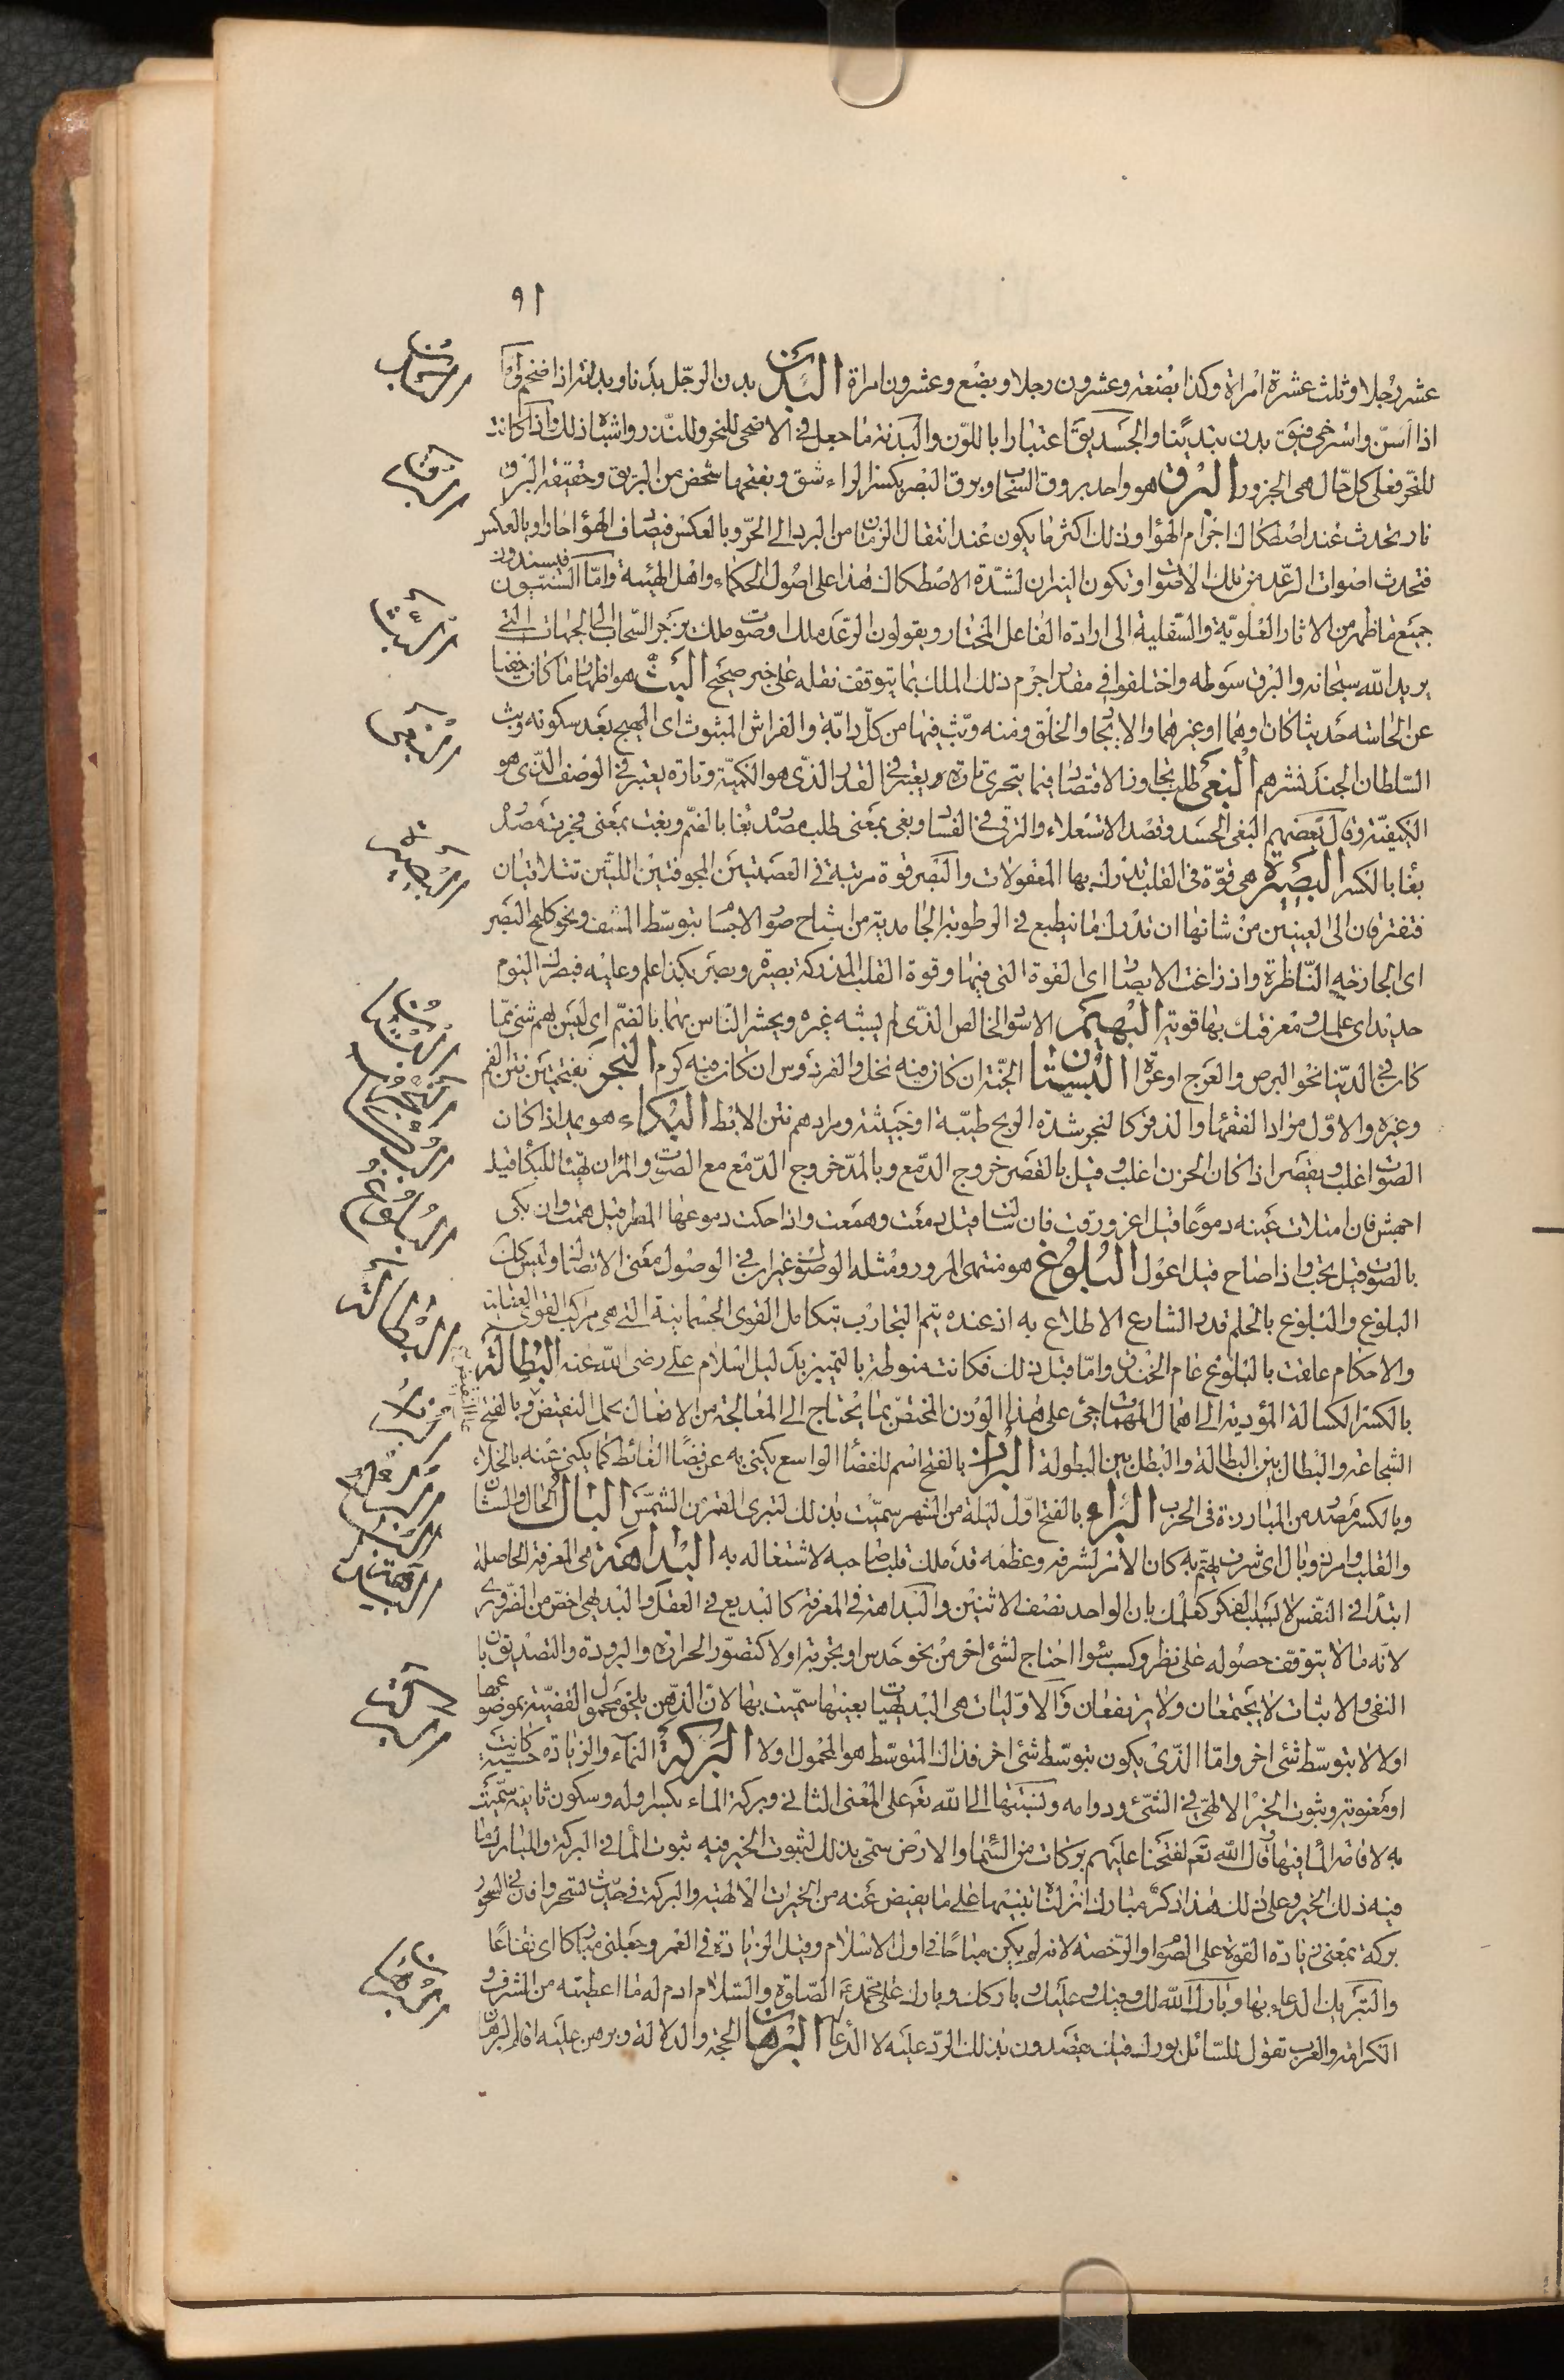 ٩١
عشر رجلا وثلث عشرة امراة وكذا بضعة وعشرون رجلا وبضع وعشرون امراة البدن بدن الرجل بدنا وبدانة اذا ضخم واما
اذا اسن واسترخى فيق بدن تبدينا والجسد يق اعتبارا باللون والبدنة ما جعل في الاضحى للنحر وللنذر واشباه ذلك واذا كانت
للنحر فعلى كل حال هى الجزور البرق هو واحد بروق السحاب وبرق البصر بكسر الراء شق وبفتحها شخص من البريق وحقيقة البرق
نار تحدث عند اصطكاك اجرام الهواء وذلك اكثر ما يكون عند انتقال الزمان من البرد الى الحر وبالعكس فيصادف الهواء حارا وبالعكس
فتحدث اصوات الرعد من تلك الاصوات وتكون النيران لشدة الاصطكاك هذا على اصول الحكماء واهل الهيئة واما السنيون فيسندون
جميع ما ظهر من الاثار العلوية والسفلية الى ارادة الفاعل المختار ويقولون الرعد ملك او صوت ملك يزجر السحاب الى الجهات التى
يريد الله سبحانه والبرق سوطه واختلفوا في مقدار جرم ذلك الملك بما يتوقف نقله على خبر صحيح البث هو اظهار ما كان خفيا
عن الحاسة حديثا كان او هما او غيرهما والايجاد والخلق ومنه وبث فيها من كل دابة والفراش المبثوث اى المهيج بعد سكونه وبث
السلطان الجند نشرهم البغى طلب تجاوز الاقتصاد فيما يتحرى تارة يعتبر في القدر الذى هو الكمية وتارة يعتبر في الوصف الذى هو
الكيفية وقال بعضهم البغى الحسد وقصد الاستعلاء والترقى في الفساد وبغى بمعنى طلب مصدره بغا بالضم وبغت بمعنى فجرت مصدره
بغا بالكسر البصيرة هى قوة في القلب تدرك بها المعقولات والبصر قوة مرتبة في العصبتين المجوفتين اللتين تتلاقيان
فتفترقان الى العينين من شانها ان تدرك ما ينطبع في الرطوبة الجامدية من اشباح صور الاجسام بتوسط المشف ونحو كلمح البصر
اى الجارحة الناظرة واذ زاغت الابصار اى القوة التى فيها وقوة القلب المدركة بصيرة وبصر بكذا علم وعليه فبصرك اليوم
حديد اى علمك ومعرفتك بها قوية البهيم الاسود الخالص الذى لم يشبه غيره ويحشر الناس بهما بالضم اى ليس بهم شئ مما
كان في الدنيا نحو البرص والعرج او عراة البستان الجنة ان كان فيه نخل والفردوس ان كان فيه كرم البخر بفتحتين نتن الفم
وغيره والاول مراد الفقهاء والذفر كالبخر شدة الريح طيبة او خبيثة ومرادهم نتن الابط البكاء هو يمد اذا كان
الصوت اغلب ويقصر اذا كان الحزن اغلب وقيل بالقصر خروج الدمع وبالمد خروج الدمع مع الصوت والمرء ان تهيأ للبكاء قيل
اجهش فان امتلات عينه دموعا قيل اغرورقت فان سالت قيل دمعت وهمعت واذا حكت دموعها المطر قيل همت وان بكى
بالصوت قيل نحب واذا صاح قيل اعول البلوغ هو منتهى المرور ومثله الوصول غير ان في الوصول معنى الاتصال وليس كك
البلوغ والبلوغ بالحلم قدر الشارع الاطلاع به اذ عنده يتم التجارب بتكامل القوى الجسمانية التى هى مراكب القوى العقلية
والاحكام علقت بالبلوغ عام الخندق واما قبل ذلك فكانت منوطة بالتمييز بدليل اسلام على رضى الله عنه البطالة
بالكسر الكسالة المؤدية الى اهمال المهمات جئ على هذا الوزن المختص بما يحتاج الى المعالجة من الافعال بحمل النقيض وبالفتح
الشجاعة والبطال بين البطالة والبطل بين البطولة البراز بالفتح اسم للفضاء الواسع يكنى به عن فضاء الغائط كما يكنى عنه بالخلاء
وبالكسر مصدر من المبارزة في الحرب البراء بالفتح اول ليلة من الشهر سميت بذلك لتبرى القمر من الشمس البال الحال والشان
والقلب وامر ذو بال اى شرف يهتم به كان الامر لشرفه وعظمه قد ملك قلب صاحبه لاشتغاله به البداهة هى المعرفة الحاصلة
ابتداء في النفس لا بسبب الفكر كعلمك بان الواحد نصف الاثنين والبداهة في المعرفة كالبديع في العقل والبديهى اخص من الضرورى
لانه ما لا يتوقف حصوله على نظر وكسب سواء احتاج لشئ اخر من نحو حدس او تجربة اولا كتصور الحرارة والبرودة والتصديق بان
النفى والاثبات لا يجتمعان ولا يرتفعان والاوليات هى البديهيات بعينها سميت بها لان الذهن يلحق محمول القضية بموضوعها
اولا لا بتوسط شئ اخر واما الذى يكون بتوسط شئ اخر فذاك المتوسط هو المحمول اولا البركة النماء والزيادة حسية كانت
او معنوية وثبوت الخير الالهى في الشئ ودوامه ونسبتها الى الله تعم على المعنى الثانى وبركة الماء بكسر اوله وسكون ثانيه سميت
به لاقامة الماء فيها قال الله تعم لفتحنا عليهم بركات من السماء والارض سمى بذلك لثبوت الخير فيه ثبوت الماء في البركة والمبارك ما
فيه ذلك الخير وعلى ذلك هذا ذكر مبارك انزلناه تنبيها على ما يفيض عنه من الخيرات الالهية والبركة في حديث تسحروا فان في السحور
بركة بمعنى زيادة القوة على الصوم او الرخصة لانه لم يكن مباحا في اول الاسلام وقيل الزيادة في العمر وجعلنى مباركا اى نفاعا
والتبريك الدعاء بها وبارك الله لك وفيك وعليك وباركك وبارك على محمد الصلوة والسلام ادم له ما اعطيته من الشرف و
الكرامة والعرب تقول للسائل بورك فيك يقصدون بذلك الرد عليه لا الدعاء البرهان الحجة والدلالة وبرهن عليه اقام البرهان
البرق
البث
البغى
البصيرة
البستان
البخر
البكاء
البلوغ
البطالة
البراء
البال
البداهة
البركة
البرهان